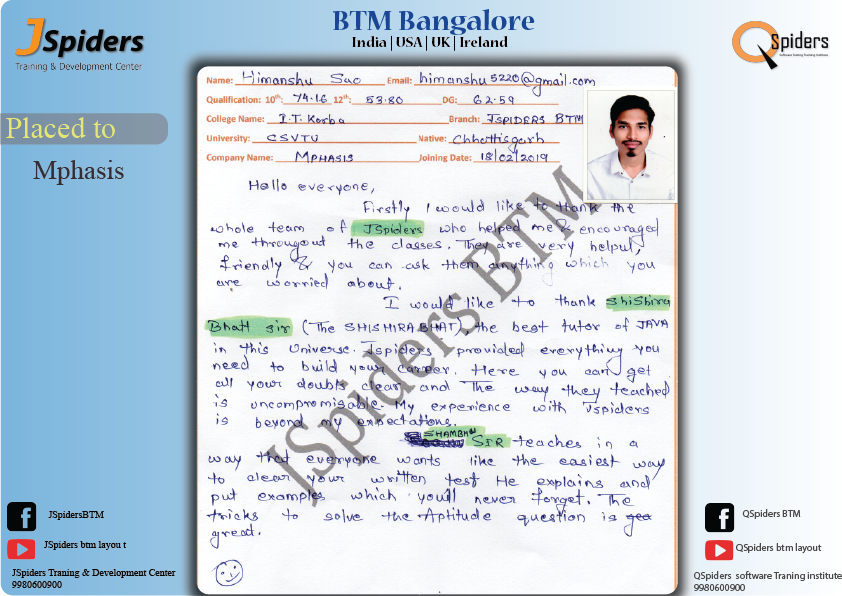 JSpiders
Training & Development Center
BTM Bangalore
India | USA | UK | Ireland
QSpiders
Software Testing Training Institute
Placed to
Mphasis
Name: Himanshu Sao Email: himanshu5220@gmail.com
Qualification: 10th: 74.16 12th: 53.80 DG: 62.59
College Name: I.T. Korba Branch: JSPIDERS BTM
University: CSVTU Native: Chhattisgarh
Company Name: MPHASIS Joining Date: 18/02/2019
Hello everyone,
Firstly I would like to thank the
whole team of JSpiders who helped me & encouraged
me througout the classes. They are very helpul,
friendly & you can ask them anything which you
are worried about.
I would like to thank Shishira
Bhatt sir (The SHISHIRA BHAT), the best tutor of JAVA
in this Universe. Jspiders provided everything you
need to build your career. Here you can get
all your doubts clear and The way they teached
is uncompromisable. My experience with Jspiders
is beyond my expectations.
SHAMBHU
SIR teaches in a
way that everyone wants like the easiest way
to clear your written test He explains and
put examples which you'll never forget. The
tricks to solve the Aptitude question is
great.
JSpiders BTM
JSpidersBTM
JSpiders btm layou t
JSpiders Traning & Development Center
9980600900
QSpiders BTM
QSpiders btm layout
QSpiders software Traning institute
9980600900